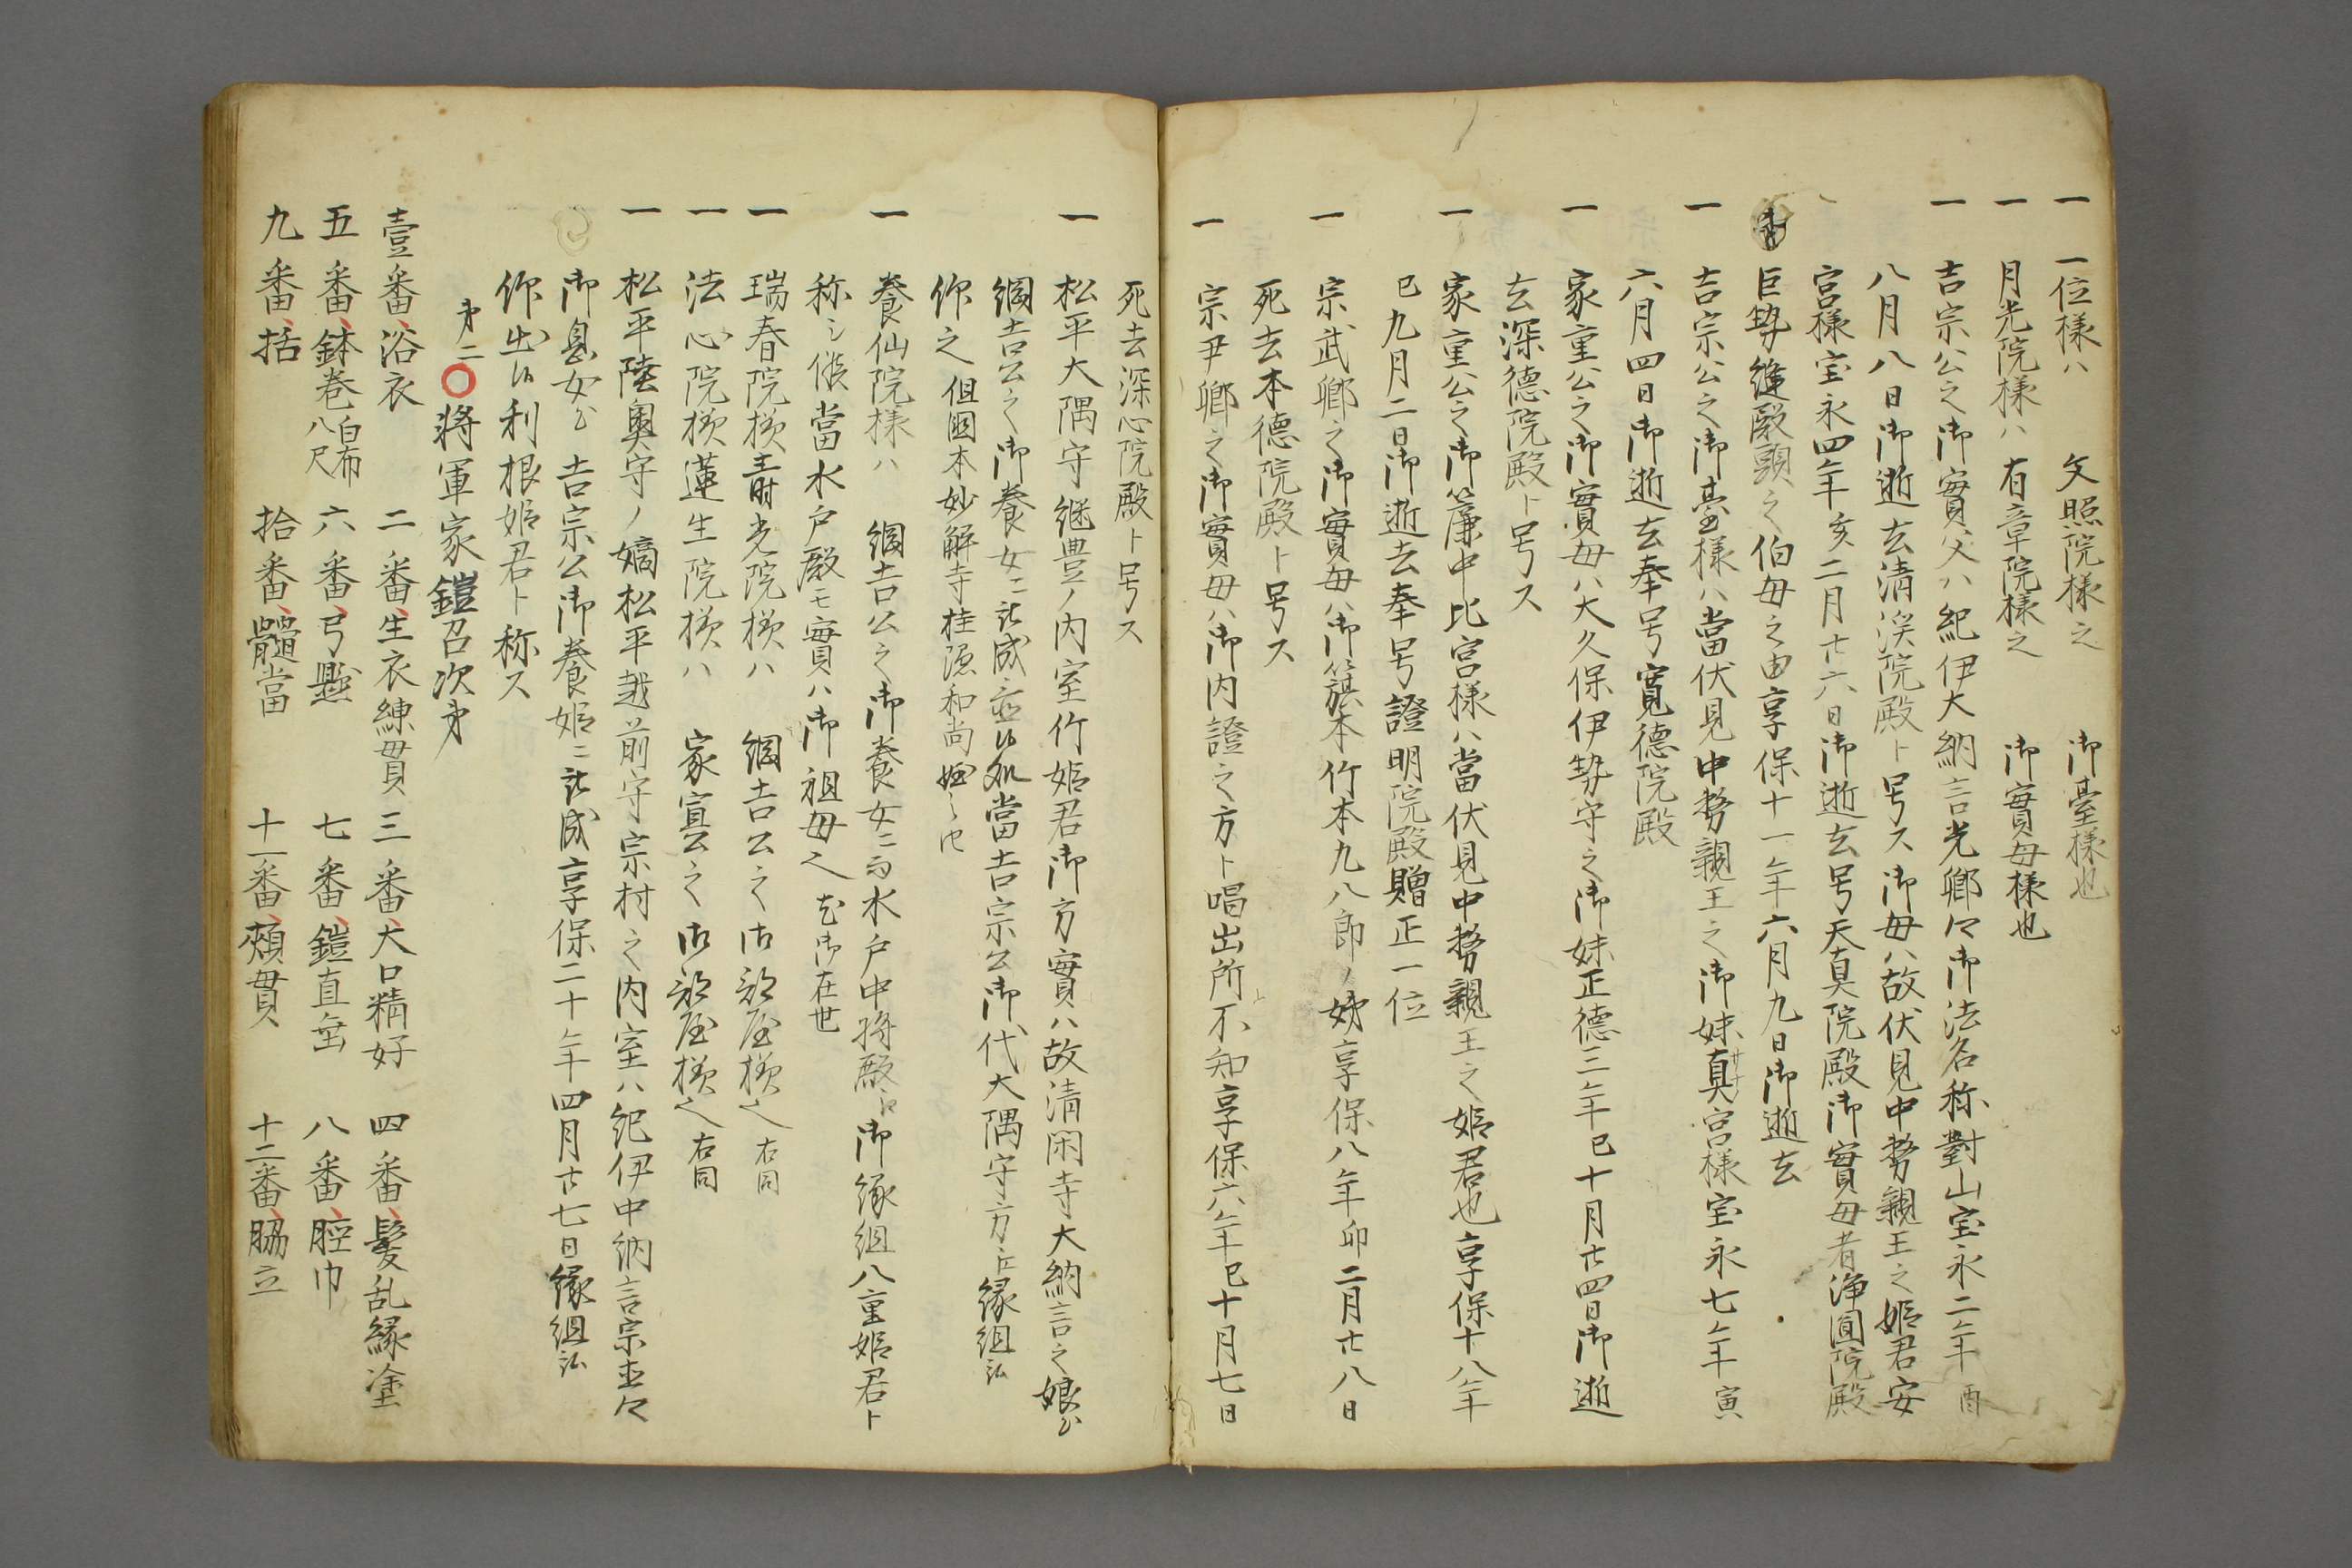 一 一位様ハ 文照院様之 御臺様也
一 月光院様ハ 有章院様之 御實母様也
一 吉宗公之御實父ハ紀伊大納言光郷々御法名称對山宝永二年酉
八月八日御逝去清渓院殿ト号ス御母ハ故伏見中務親王之姫君安
宮様宝永四年亥二月廿六日御逝去号天真院殿御實母者浄圓院殿
巨勢縫殿頭之伯母之由享保十一年六月九日御逝去
一 吉宗公之御臺様ハ當伏見中務親王之御妹真宮様宝永七年寅
六月四日御逝去奉号寛德院殿
一 家重公之御實母ハ大久保伊勢守之御妹正德三年巳十月廿四日御逝
去深德院殿ト号ス
一 家重公之御簾中比宮様ハ當伏見中務親王之姫君也享保十八年
巳九月二日御逝去奉号證明院殿贈正一位
一 宗武郷之御實母ハ御簱本竹本九八郎ノ姊享保八年卯二月廿八日
死去本德院殿ト号ス
一 宗尹郷之御實母ハ御内證之方ト唱出所不知享保六年巳十月七日
死去深心院殿ト号ス
一 松平大隅守継豊ノ内室竹姫君御方實ハ故清閑寺大納言之娘
綱吉公之御養女ニ成當吉宗公御代大隅守方江縁組
仰之但國本妙解寺桂隠和尚
一 養仙院様ハ 綱吉公之御養女ニ水戸中将殿江御縁組八重姫君ト
称シ候當水戸殿モ實ハ御祖母 御在世
一 瑞春院様青光院様ハ 綱吉公之御部屋様 右同
一 法心院様蓮生院様ハ 家宣公之御部屋様 右同
一 松平陸奥守ノ嫡松平越前守宗村之内室ハ紀伊中納言宗直々
御息女 吉宗公御養姫ニ成享保二十年四月廿七日縁組
仰出利根姫君ト称ス
才二〇将軍家鎧召次才
壹番浴衣 二番生衣練貫 三番大口精好 四番髪乱縁塗
五番鉢巻白布八尺 六番弓懸 七番鎧直垂 八番脛巾
九番括 拾番髄當 十一番頬貫 十二番脇立